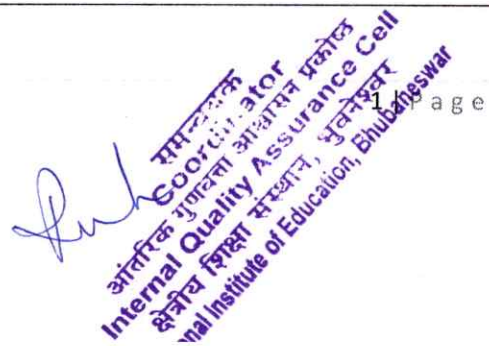 समन्वयक
Coordinator
आंतरिक गुणवत्ता आश्वासन प्रकोष्ठ
Internal Quality Assurance Cell
क्षेत्रीय शिक्षा संस्थान, भुवनेश्वर
onal Institute of Education, Bhubaneswar
1 | P a g e